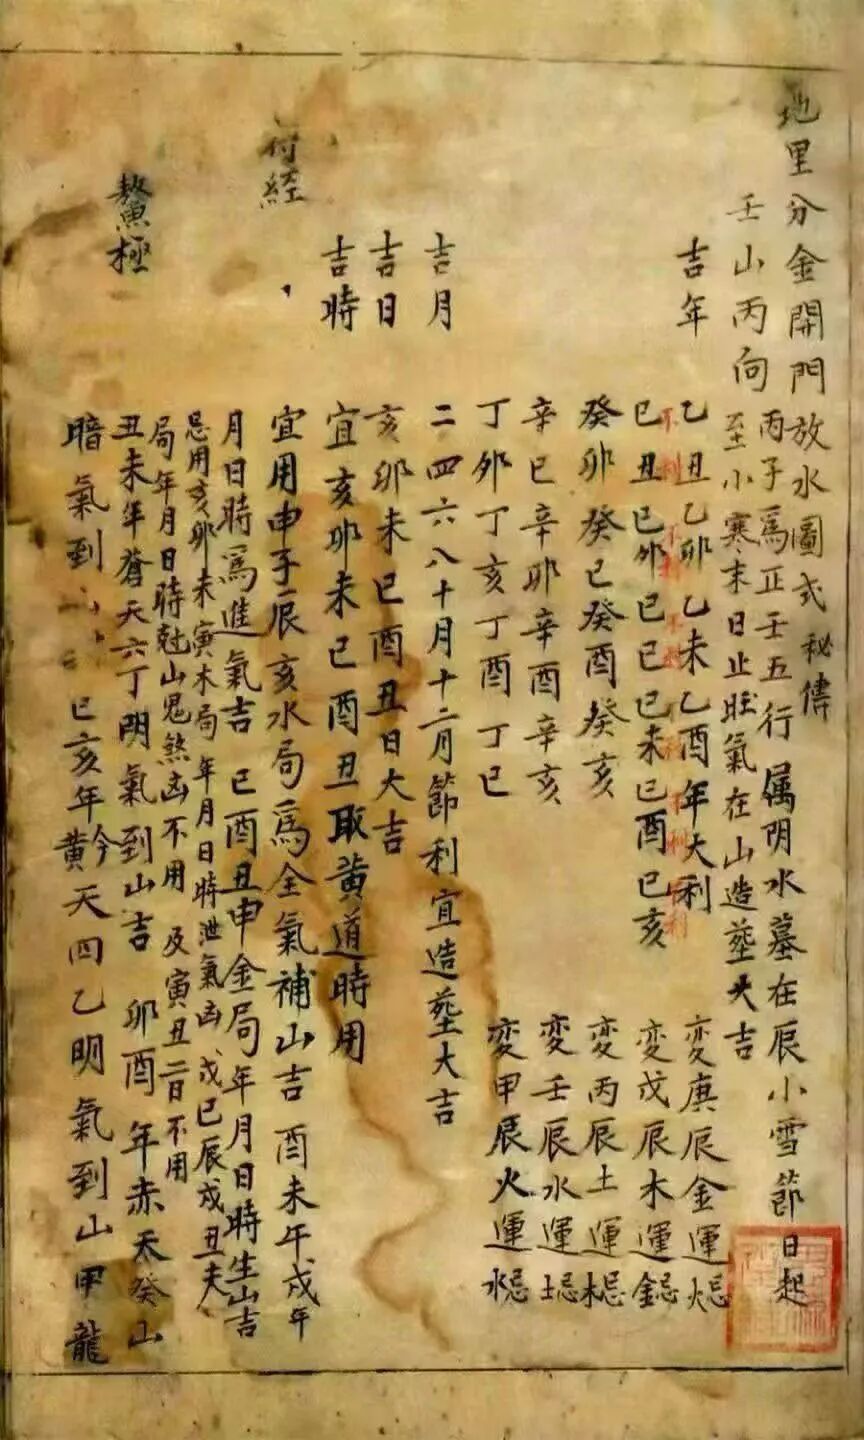 地里分金開門放水圖式秘傳
壬山丙向
丙子爲正壬五行属阴水墓在辰小雪節日起
至小寒末日止旺氣在山造塟大吉
吉年
乙丑乙卯乙未乙酉年大利
変庚辰金運忌火
已丑已卯已巳已未已酉已亥
変戊辰木運忌金
癸卯癸巳癸酉癸亥
変丙辰土運忌木
辛巳辛卯辛酉辛亥
変壬辰水運忌土
丁卯丁亥丁酉丁巳
変甲辰火運忌水
吉月
二四六八十月十二月節利宜造塟大吉
吉日
亥卯未巳酉丑日大吉
吉時
宜亥卯未巳酉丑取黄道時用
符經
宜用申子辰亥水局爲全氣補山吉酉未午戌年
月日時爲進氣吉 已酉丑申金局年月日時生山吉
忌用亥卯未寅木局年月日時泄氣凶戊已辰戌丑未
局年月日時尅山鬼煞凶不用 及寅丑二日不用
鰲極
丑未年蒼天六丁阴氣到山吉 卯酉年赤天癸山
暗氣到 已亥年黄今天四乙明氣到山甲龍